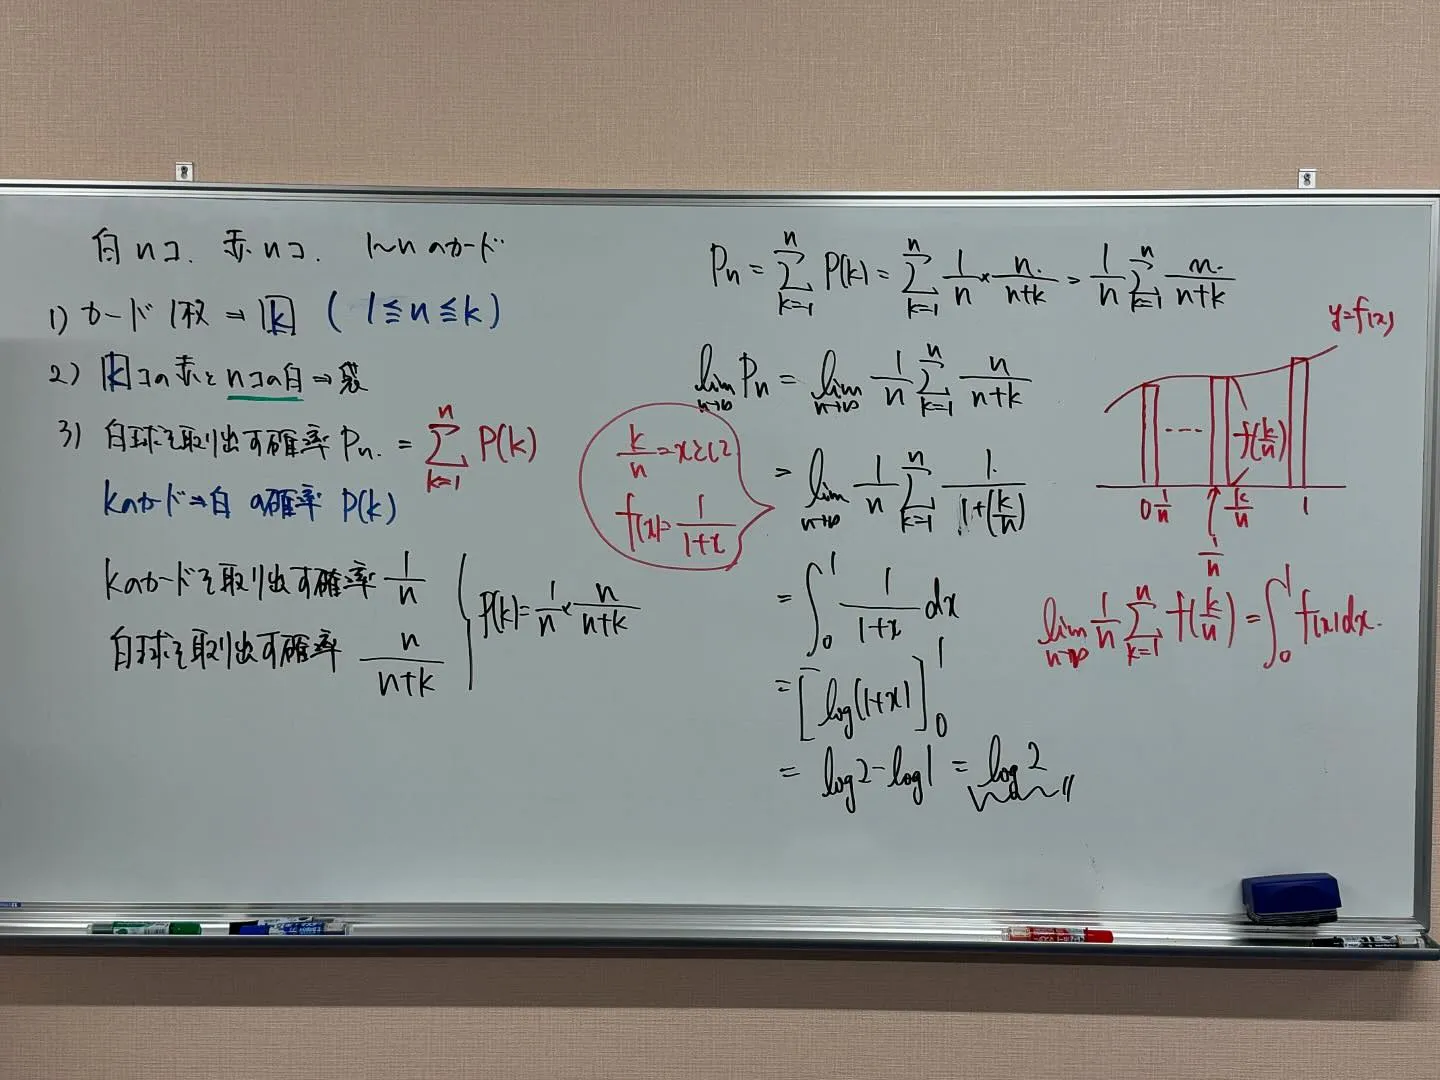 白nコ、赤nコ、1〜nのカード
1) カード1枚⇒k (1≦n≦k)
2) kコの赤とnコの白⇒袋
3) 白球を取り出す確率 Pn = Σ_{k=1}^{n} P(k)
kのカード⇒白 の確率 P(k)
kのカードを取り出す確率 1/n
白球を取り出す確率 n/(n+k)
P(k)=1/n × n/(n+k)
Pn = Σ_{k=1}^{n} P(k) = Σ_{k=1}^{n} 1/n × n/(n+k) = 1/n Σ_{k=1}^{n} n/(n+k)
lim_{n→∞} Pn = lim_{n→∞} 1/n Σ_{k=1}^{n} n/(n+k)
= lim_{n→∞} 1/n Σ_{k=1}^{n} 1/(1+(k/n))
k/n = xとして
f(x)=1/(1+x)
= ∫_0^1 1/(1+x) dx
= [log(1+x)]_0^1
= log2-log1 = log2
y=f(x)
f(k/n)
0 1/n k/n 1
1/n
lim_{n→∞} 1/n Σ_{k=1}^{n} f(k/n) = ∫_0^1 f(x)dx.